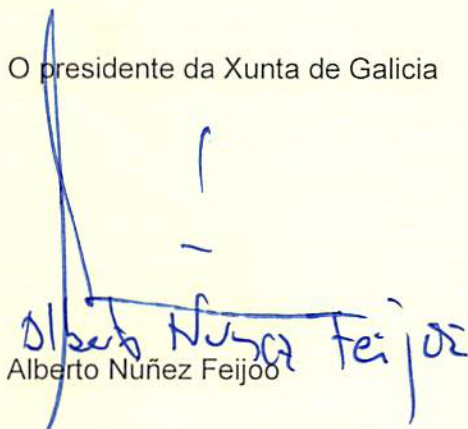 O presidente da Xunta de Galicia
Alberto Nuñez Feijoo
Alberto Nuñez Feijoo